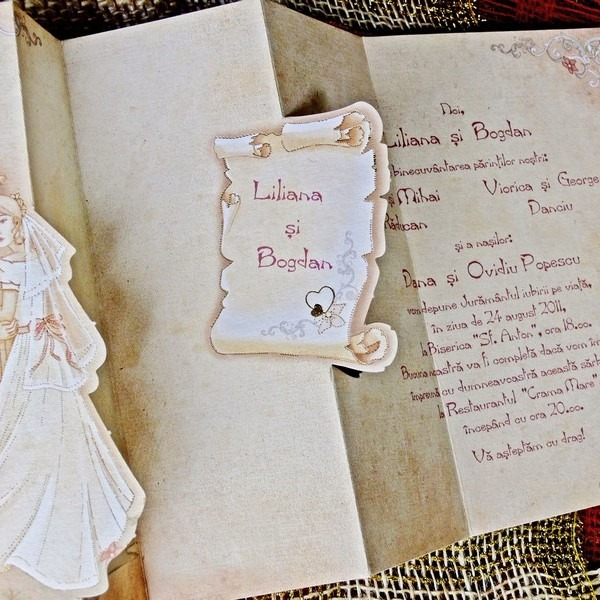 Liliana
și
Bogdan
Noi,
Liliana și Bogdan
binecuvântarea părinților noștri:
Mihai Viorica și George
Răducan Danciu
și a nașilor:
Dana și Ovidiu Popescu
vom depune Jurământul iubirii pe viață,
în ziua de 24 august 2011,
la Biserica "Sf. Anton", ora 18.00.
Bucuria noastră va fi completă dacă vom
împreună cu dumneavoastră această
la Restaurantul "Crama Mare"
începând cu ora 20.00.
Vă așteptăm cu drag!